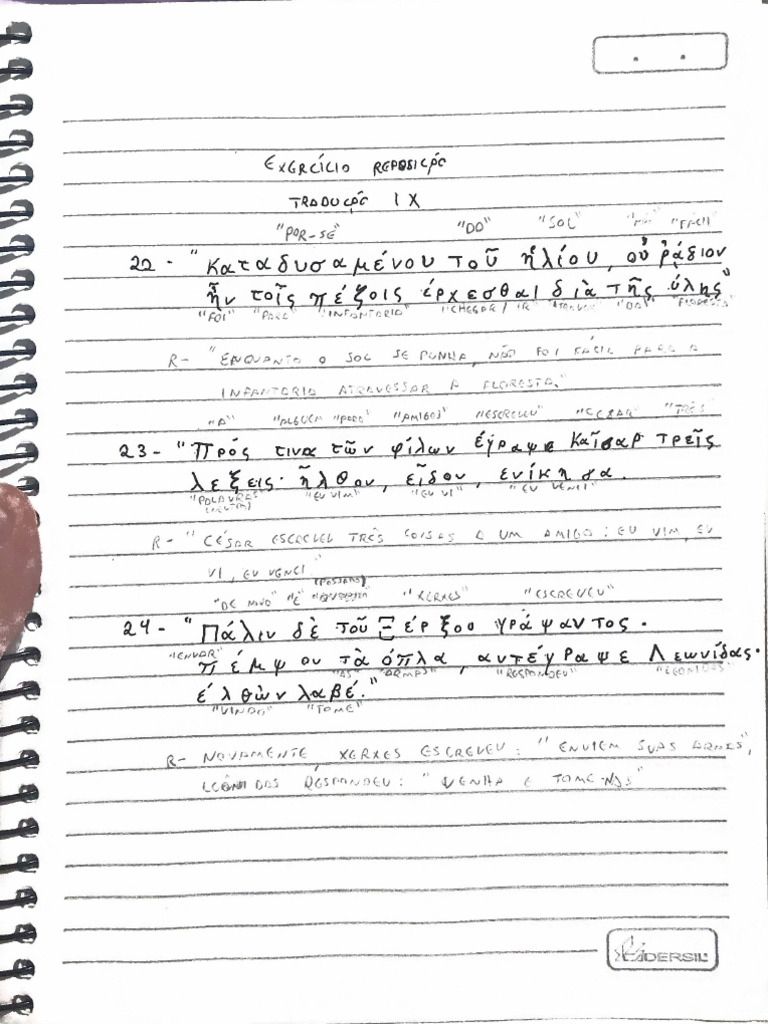 EXERCÍCIO REPOSIÇÃO
TRADUÇÃO IX
"POR-SE" "DO" "SOL" "NÃO" "FÁCIL"
22 - "καταδυσαμένου τοῦ ἡλίου, οὐ ῥάδιον
ἦν τοῖς πέζοις ἐρχεσθαι διὰ τῆς ὑλης"
"FOI" "PARA" "INFANTARIA" "CHEGAR/IR" "DA" "FLORESTA"
R- "ENQUANTO O SOL SE PUNHA, NÃO FOI FÁCIL PARA A
INFANTARIA ATRAVESSAR A FLORESTA."
"A" "ALGUEM" "PARA" "AMIGOS" "ESCREVEU" "CESAR" "TRÊS"
23 - "Πρός τινα τῶν φίλων ἐγραψε Καῖσαρ τρεῖς
λεξεις· ἦλθον, εἶδον, ενίκησα.
"PALAVRAS" "EU VIM" "EU VI" "EU VENCI"
R- "CÉSAR ESCREVEU TRÊS COISAS A UM AMIGO: EU VIM, EU
VI, EU VENCI
(PASSADO)
"DE NOVO" "E" "XERXES" "ESCREVEU"
24 - "Πάλιν δὲ τοῦ Ξέρξου γράψαντος·
"ENVIAR"
πέμψον τὰ όπλα, αντέγραψε Λεωνίδας·
"AS" "ARMAS" "RESPONDEU" "LEONIDAS"
ἐλθὼν λαβέ."
"VINDO" "TOME"
R- NOVAMENTE, XERXES ESCREVEU: "ENVIEM SUAS ARMAS",
LEÔNIDAS RESPONDEU: "VENHA E TOME-NAS
CADERSIL